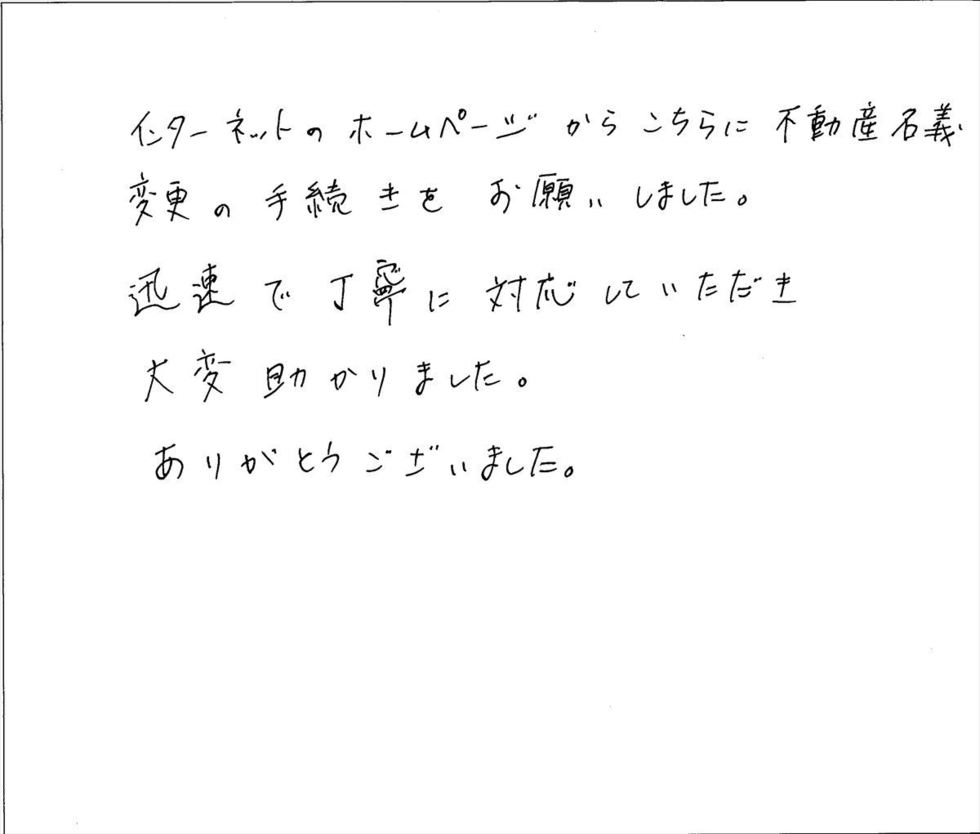 インターネットのホームページからこちらに不動産名義
変更の手続きをお願いしました。
迅速で丁寧に対応していただき
大変助かりました。
ありがとうございました。